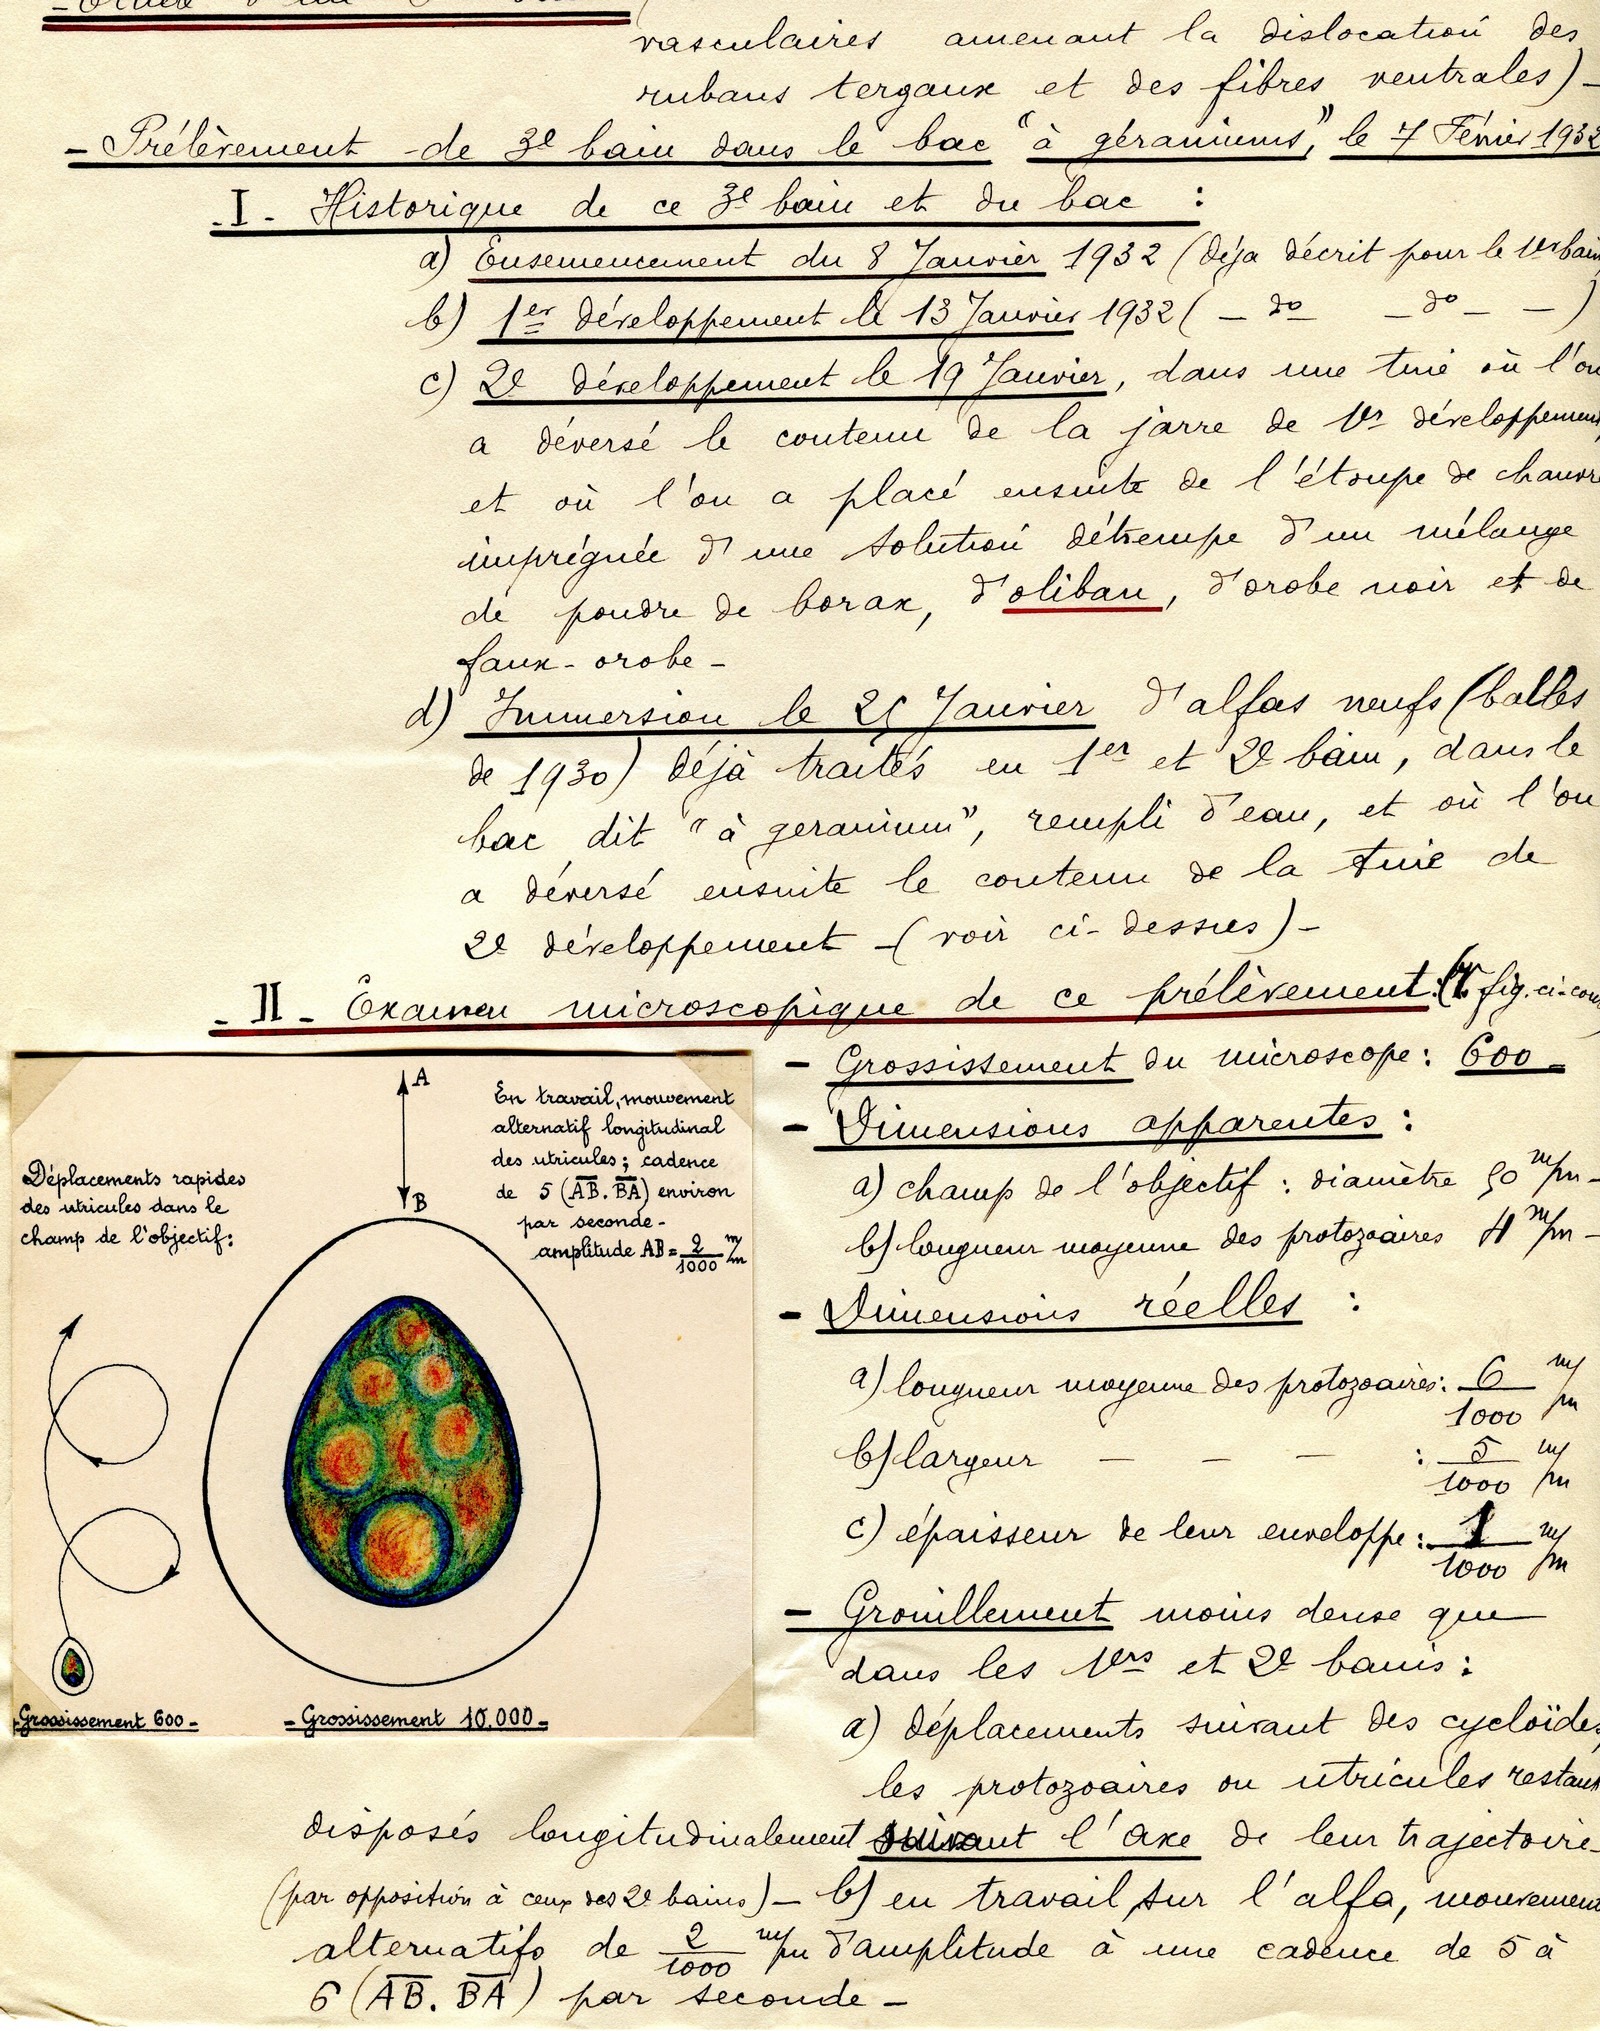 vasculaires amenant la dislocation des
rubans tergaux et des fibres ventrales) -
- Prélèvement de 3e bain dans le bac "à géraniums", le 7 Février 1932
- I - Historique de ce 3e bain et du bac :
a) Ensemencement du 8 Janvier 1932 (déja décrit pour le 1er bain
b) 1er développement le 13 Janvier 1932 ( - do - do - - )
c) 2e développement le 19 Janvier, dans une tine où l'on
a déversé le contenu de la jarre de 1er développement,
et où l'on a placé ensuite de l'étoupe de chanvre
imprégnée d'une solution détrempe d'un mélange
de poudre de borax, d'oliban, d'orobe noir et de
faux-orobe -
d) Immersion le Janvier d'alfas neufs (balles
de 1930) déjà traités en 1er et 2e bain, dans le
bac dit "à geranium", rempli d'eau, et où l'on
a déversé ensuite le contenu de la tine de
2e développement - (voir ci-dessus) -
- II - Examen microscopique de ce prélèvement : fig. ci-con
- Grossissement du microscope : 600 -
- Dimensions apparentes :
a) champ de l'objectif : diamètre 50 m/m -
b) longueur moyenne des protozoaires 4 m/m -
- Dimensions réelles :
a) longueur moyenne des protozoaires : 6/1000 m/m
b) largeur - - - : 5/1000 m/m
c) épaisseur de leur enveloppe : 1/1000 m/m
- Grouillement moins dense que
dans les 1ers et 2e bains :
a) déplacements suivant des cycloïdes,
les protozoaires ou utricules restant
A
En travail, mouvement
alternatif longitudinal
des utricules ; cadence
de 5 (AB. BA) environ
par seconde -
amplitude AB = 2/1000 m/m
B
Déplacements rapides
des utricules dans le
champ de l'objectif :
- Grossissement 600 -
- Grossissement 10.000 -
disposés longitudinalement suivant l'axe de leur trajectoire -
(par opposition à ceux des 2e bains) - b) en travail, sur l'alfa, mouvement
alternatifs de 2/1000 m/m d'amplitude à une cadence de 5 à
6 (AB. BA) par seconde -